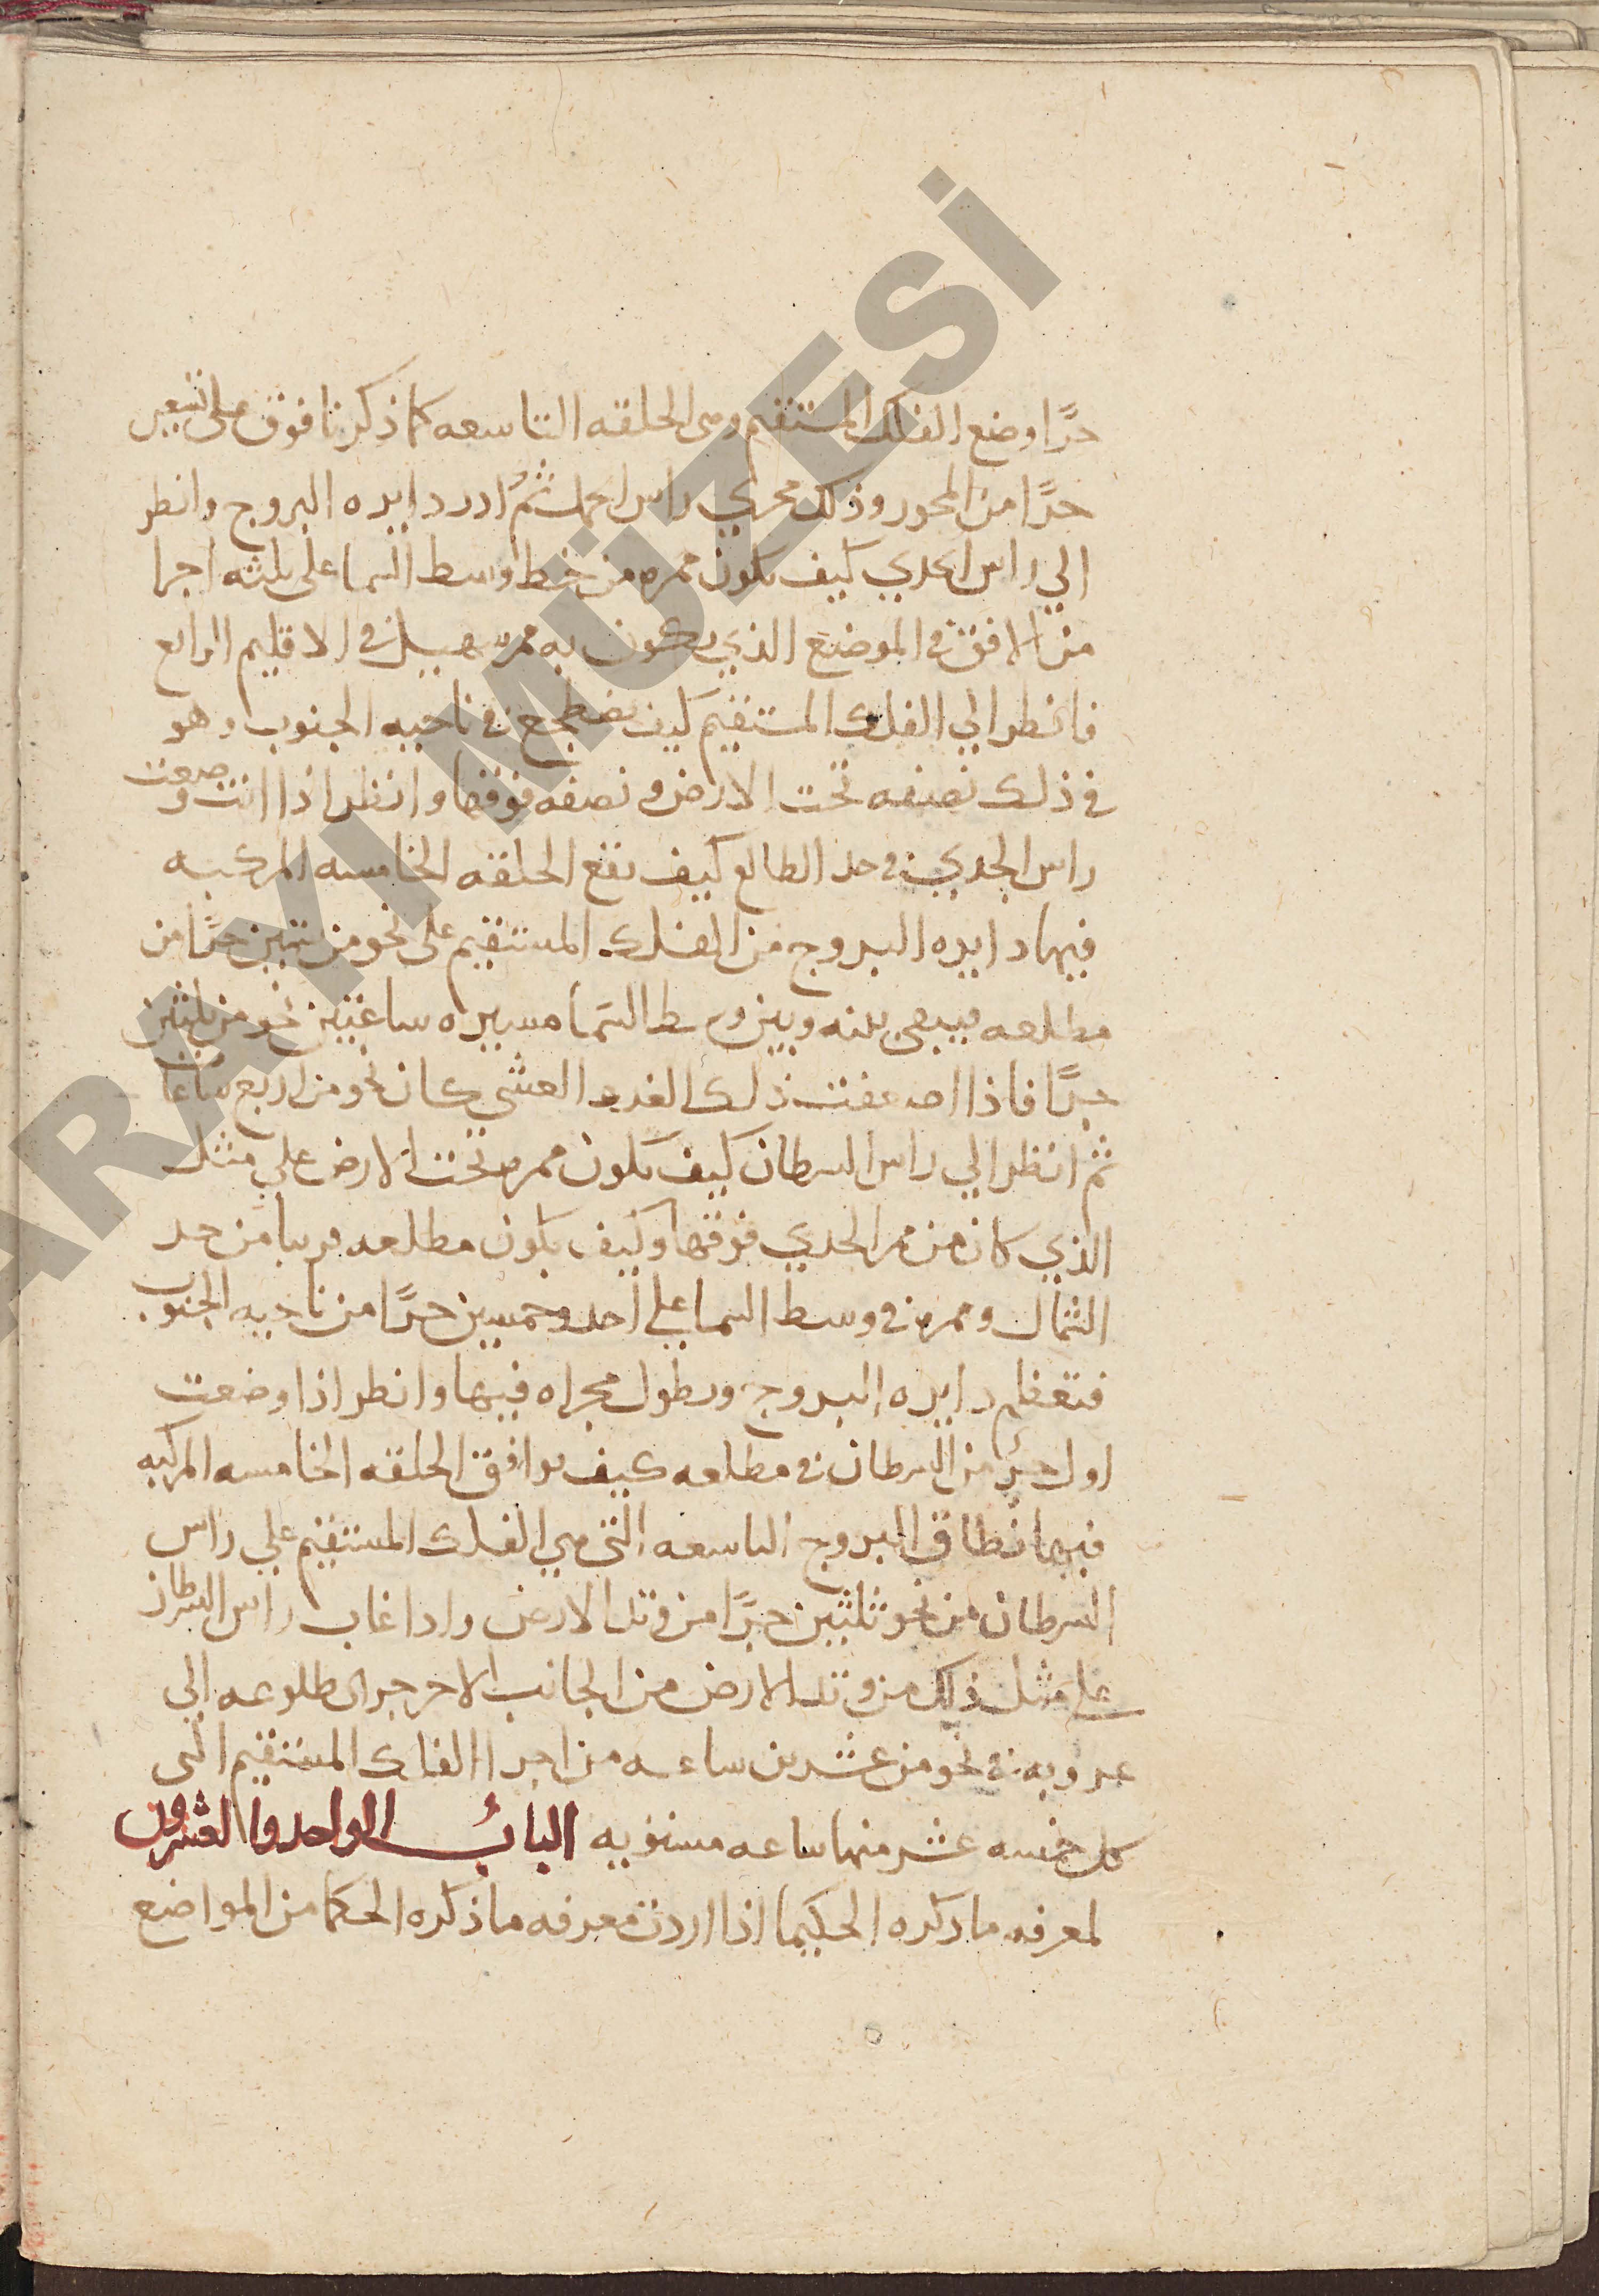 جزًا وضع الفلك المستقيم وهي الحلقه التاسعه كما ذكرنا فوق على تسعين
جزًا من المحور وذلك مجري راس الحمل ثم ادر دايره البروج وانطر
الي راس الجدي كيف يكون ممره من خط وسط السما على ثلثه اجزا
من الافق في الموضع الذي يكون به ممر سهيل في الاقليم الرابع
فانطر الي الفلك المستقيم كيف يضطجع في ناحيه الجنوب وهو
في ذلك نصفه تحت الارض ونصفه فوقها وانظر اذا انت وضعت
راس الجدي في حد الطالع كيف تقع الحلقه الخامسه المركبه
فيها دايره البروج من الفلك المستقيم على نحو من ستين جزًا من
مطلعه فيبقى بينه وبين وسط السما مسيره ساعتين نحو من ثلثين
جزًا فاذا اضعفت ذلك الغدو العشي كان نحو من اربع ساعا
ثم انظر الي راس السرطان كيف يكون ممره تحت الارض علي مثل
الذي كان من ممر الجدي فوقها وكيف يكون مطلعه قريبا من حد
الشمال وممره في وسط السما علي احد وخمسين جزًا من ناحيه الجنوب
فتعظم دايره البروج ويطول مجراه فيها وانطر اذا وضعت
اول جزء من السرطان في مطلعه كيف توافق الحلقه الخامسه المركبه
فيها نطاق البروج التاسعه التي هي الفلك المستقيم علي راس
السرطان من نحو ثلثين جزًا من وتد الارض واذا غاب راس السرطان
على مثل ذلك من وتد الارض من الجانب الاخر جرى طلوعه الي
غروبه في نحو من عشرين ساعه من اجزا الفلك المستقيم التي
كل خمسه عشر منها ساعه مستويه الباب الواحد والعشرون
لمعرفه ما ذكره الحكيما اذا اردت معرفه ما ذكره الحكما من المواضع
ARAYI MÜZESİ